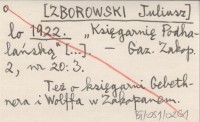 [ZBOROWSKI Juliusz]
lo 1922. „Księgarnię Podha-
lańską" [...]. – Gaz. Zakop.
2, nr 20: 3.
Też o „księgarni Gebeth-
nera i Wolffa w Zakopanem.